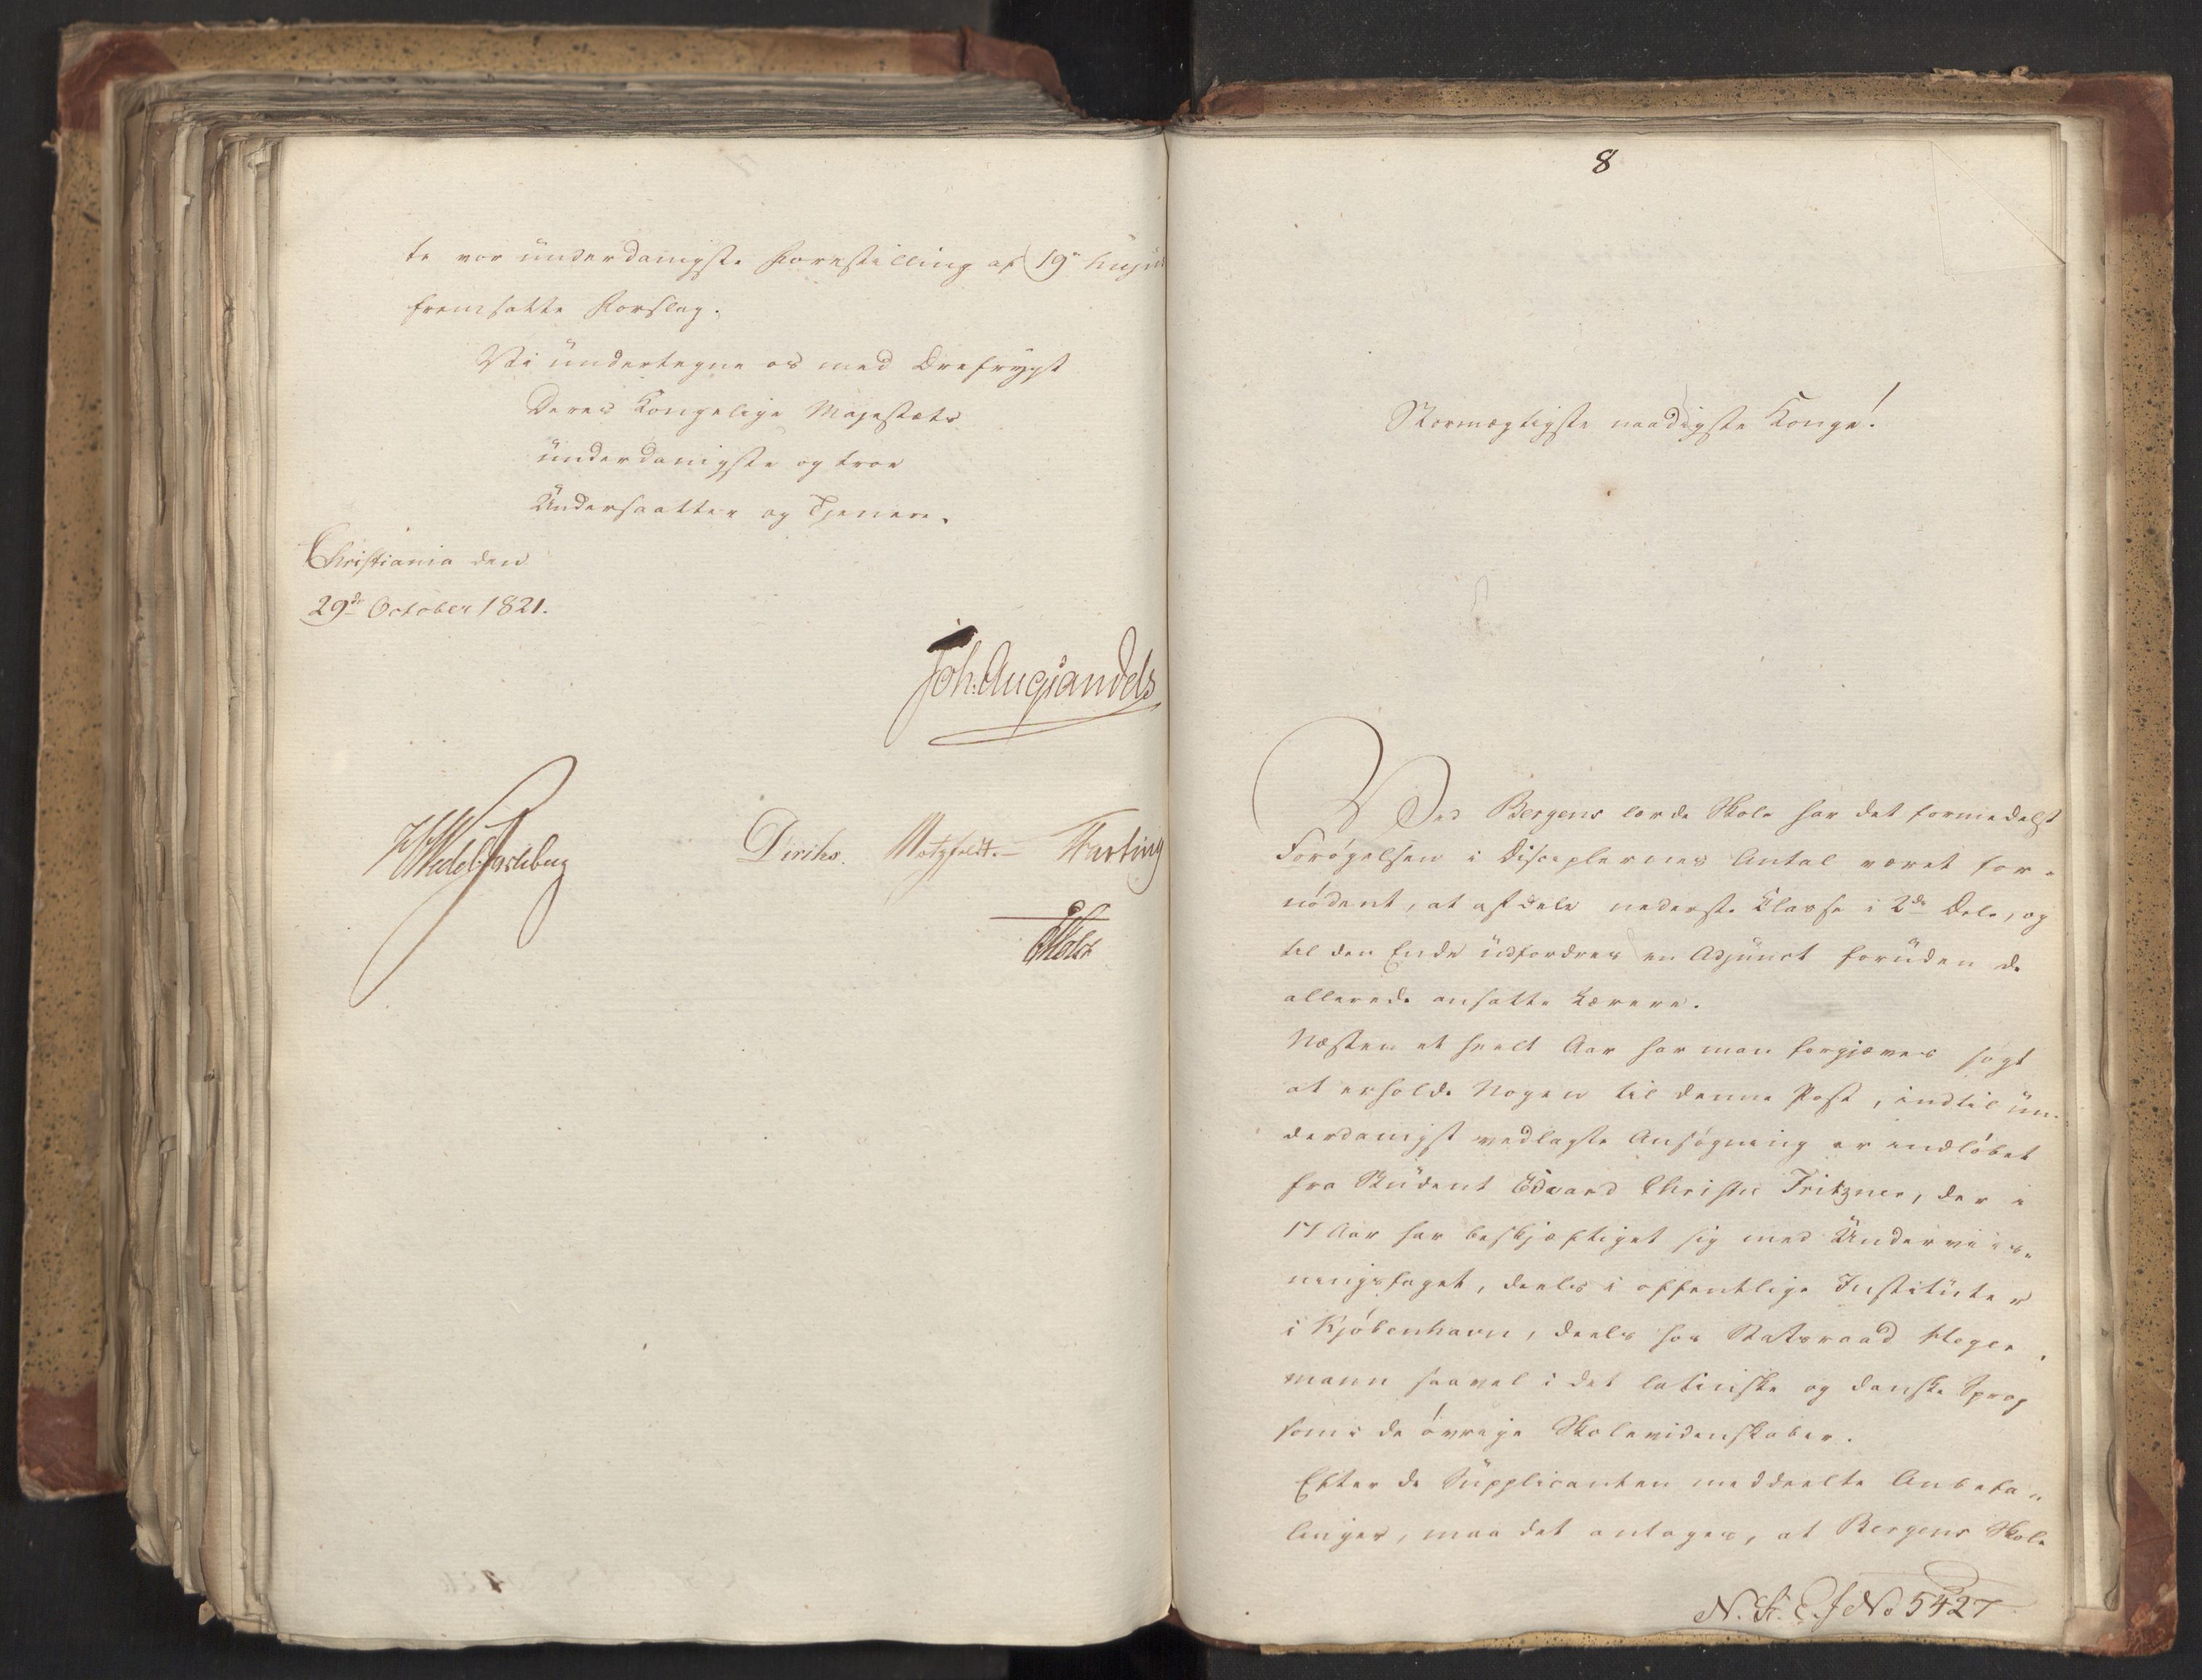 te vor underdanigste Forestilling af 19de hujus
fremsatte Forslag.
Vi undertegne os med Ærefrygt
Deres Kongelige Majestæts
underdanigste og troe
Undersaatter og Tjenere.
Christiania den
29de October 1821.
Joh: Aug Sandels
HWedelJarlsberg
Diriks. Motzfeldt. Fasting
CHolst
8
Stormægtigste naadigste Konge!
Ved Bergens lærde Skole har det formedelst
Forøgelsen i Disciplernes Antal været for-
nødent, at afdele nederste Classe i 2de Dele, og
til den Ende udfordres en Adjunct foruden de
allerede ansatte Lærere.
Næsten et heelt Aar har man forgjæves søgt
at erholde Nogen til denne Post, indtil un-
derdanigst vedlagte Ansøgning er indløbet
fra Student Edvard Christie Fritzner, der i
17 Aar har beskjæftiget sig med Underviis-
ningsfaget, deels i offentlige Instituter
i Kjøbenhavn, deels hos Statsraad Heger-
mann saavel i det latinske og danske Sprog
som i de øvrige Skolevidenskaber.
Efter de Supplicanten meddeelte Anbefa-
linger, maa det antages, at Bergens Skole
N. St. E. J No 5427